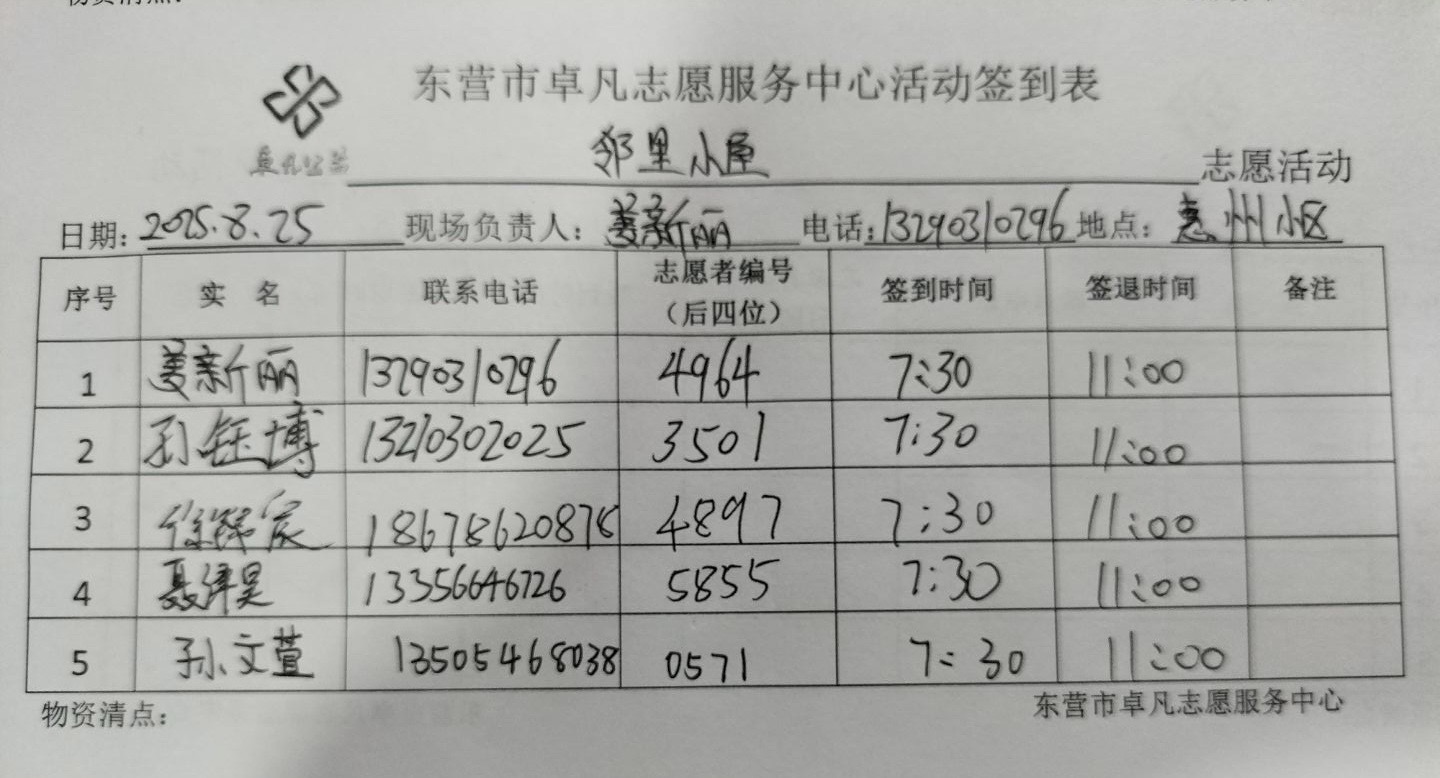 物资清点：
东营市卓凡志愿服务中心活动签到表
卓凡公益
邻里小屋 志愿活动
日期：2025.8.25 现场负责人：姜新丽 电话：13290310296 地点：惠州小区
序号 实 名 联系电话 志愿者编号（后四位） 签到时间 签退时间 备注
1 姜新丽 13290310296 4964 7:30 11:00
2 孙钰博 13210302025 3501 7:30 11:00
3 徐 家 18678620878 4897 7:30 11:00
4 聂泽昊 13356646726 5855 7:30 11:00
5 孙文萱 13505468038 0571 7:30 11:00
物资清点： 东营市卓凡志愿服务中心